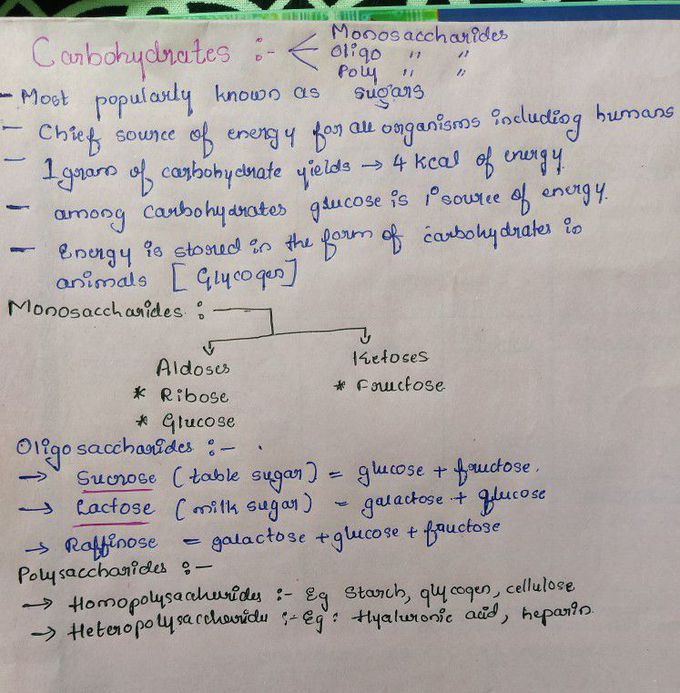 Carbohydrates :- Monosaccharides
Oligo " "
Poly " "
- Most popularly known as sugars
- Chief source of energy for all organisms including humans
- 1 gram of carbohydrate yields → 4 kcal of energy
- among carbohydrates glucose is 1° source of energy.
- Energy is stored in the form of carbohydrates in
animals [Glycogen]
Monosaccharides :-
Aldoses Ketoses
* Ribose * Fructose
* Glucose
Oligosaccharides :-
→ Sucrose (table sugar) = glucose + fructose.
→ Lactose (milk sugar) = galactose + glucose
→ Raffinose = galactose + glucose + fructose
Polysaccharides :-
→ Homopolysaccharides :- Eg Starch, glycogen, cellulose
→ Heteropolysaccharide :- Eg: Hyaluronic acid, heparin.